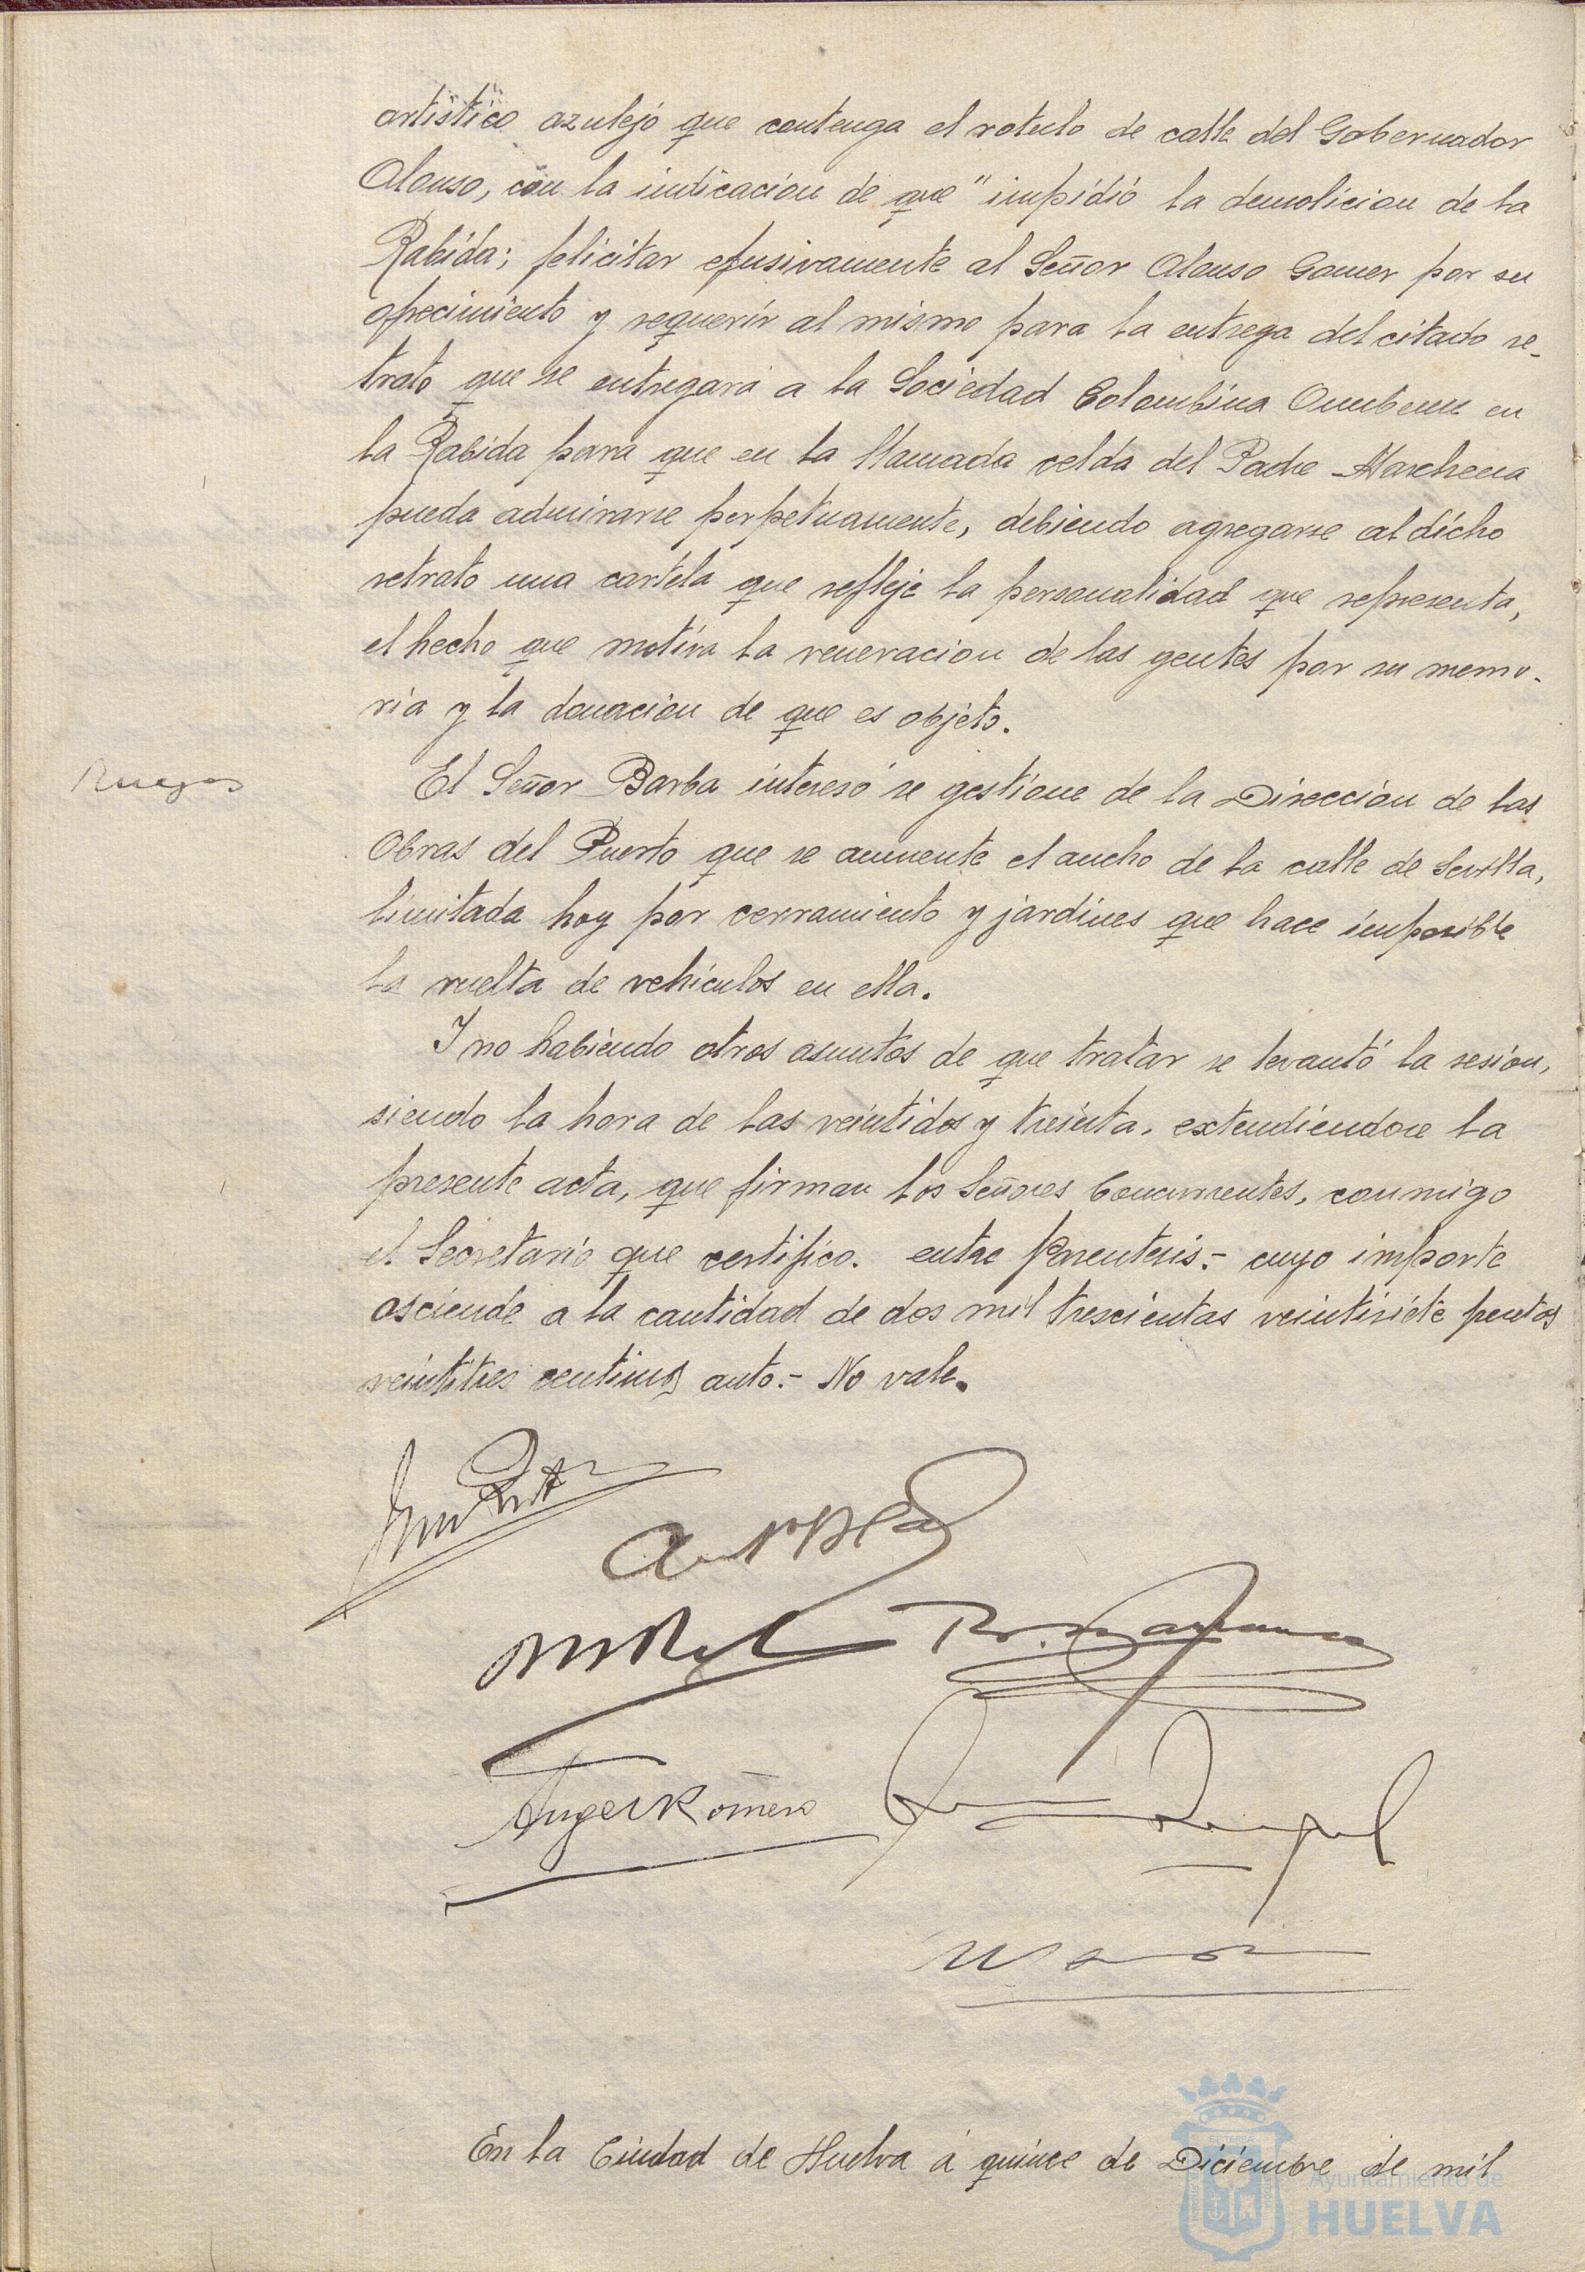 artistico azulejo que contenga el rotulo de calle del Gobernador
Alonso, con la indicacion de que "impidió la demolicion de la
Rabida; felicitar efusivamente al Señor Alonso Gamer por su
ofrecimiento y requerir al mismo para la entrega del citado re-
trato que se entregará a la Sociedad Colombina Onubense en
la Rabida para que en la llamada celda del Padre Marchena
pueda admirarse perpetuamente, debiendo agregarse al dicho
retrato una cartela que refleje la personalidad que representa,
el hecho que motiva la veneracion de las gentes por su memo-
ria y la donacion de que es objeto.
Ruegos
El Señor Barba interesó se gestione de la Direccion de las
Obras del Puerto que se aumente el ancho de la calle de Sevilla,
limitada hoy por cerramiento y jardines que hace imposible
la vuelta de vehiculos en ella.
Y no habiendo otros asuntos de que tratar se levantó la sesion,
siendo la hora de las veintidos y treinta, extendiendose la
presente acta, que firman los Señores Concurrentes, conmigo
el Secretario que certifico. entre Parentesis.- cuyo importe
asciende a la cantidad de dos mil trescientas veintisiete pesetas
veintitres centimos auto.- No vale.
Angel Romero
En la Ciudad de Huelva á quince de Diciembre de mil
Ayuntamiento de
HUELVA